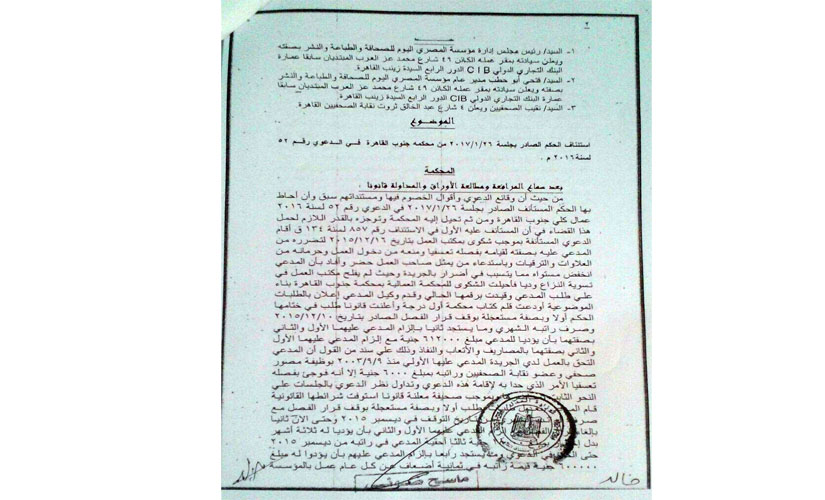 ٢
١- السيد/ رئيس مجلس إدارة مؤسسة المصري اليوم للصحافة والطباعة والنشر بصفته
ويعلن سيادته بمقر عمله الكائن ٤٩ شارع محمد عز العرب المبتديان سابقا عمارة
البنك التجاري الدولي CIB الدور الرابع السيدة زينب القاهرة.
٢- السيد/ فتحي أبو حطب مدير عام مؤسسة المصري اليوم للصحافة والطباعة والنشر
بصفته ويعلن سيادته بمقر عمله الكائن ٤٩ شارع محمد عز العرب المبتديان سابقا
عمارة البنك التجاري الدولي CIB الدور الرابع السيدة زينب القاهرة.
٣- السيد/ نقيب الصحفيين ويعلن ٤ شارع عبد الخالق ثروت نقابة الصحفيين القاهرة.
الموضوع
استئناف الحكم الصادر بجلسة ٢٠١٧/١/٢٦ من محكمه جنوب القاهرة في الدعوي رقم ٥٢
لسنة ٢٠١٦ م.
المحكمة
بعد سماع المرافعة ومطالعة الأوراق والمداولة قانونا.
من حيث أن وقائع الدعوي وأقوال الخصوم فيها ومستنداتهم سبق وأن أحاط
بها الحكم المستأنف الصادر بجلسة ٢٠١٧/١/٢٦ في الدعوي رقم ٥٢ لسنة ٢٠١٦
عمال كلي جنوب القاهرة ومن ثم تحيل إليه المحكمة وتوجزه بالقدر اللازم لحمل
هذا القضاء في أن المستأنف عليه الأول في الاستئناف رقم ٨٥٧ لسنة ١٣٤ ق أقام
الدعوي المستأنفة بموجب شكوى بمكتب العمل بتاريخ ٢٠١٥/١٢/١٦ لتضرره من
المدعي عليه بصفته لقيامه بفصله تعسفيا ومنعه من دخول العمل وحرمانه من
العلاوات والترقيات وباستدعاء من يمثل صاحب العمل حضر وأفاد بأن المدعي
انخفض مستواه مما يتسبب في أضرار بالجريدة وحيث لم يفلح مكتب العمل في
تسوية النزاع وديا فأحيلت الشكوى للمحكمة العمالية بمحكمة جنوب القاهرة بناء
علي طلب المدعي وقيدت برقمها الحالي وقدم وكيل المدعي إعلان بالطلبات
الموضوعية أودعت قلم كتاب محكمة أول درجة وأعلنت قانونا طلب في ختامها
الحكم أولا وبصفة مستعجلة بوقف قرار الفصل الصادر بتاريخ ٢٠١٥/١٢/١٠
وصرف راتبه الشهري وما يستجد ثانيا بإلزام المدعي عليهما الأول والثاني
بصفتهما بأن يؤديا للمدعي مبلغ ٦١٢٠٠٠ جنية مع إلزام المدعي عليهما الأول
والثاني بصفتهما بالمصاريف والأتعاب والنفاذ وذلك علي سند من القول أن المدعي
التحق بالعمل لدي الجريدة المدعي عليها الأولي منذ ٢٠٠٣/٩/٩ بوظيفة مصور
صحفي وعضو نقابة الصحفيين وراتبه بمبلغ ٦٠٠٠ جنية إلا أنه فوجئ بفصله
تعسفيا الأمر الذي حدا به لإقامة هذه الدعوي وتداول نظر الدعوي بالجلسات علي
النحو الثابت وبموجب صحيفة معلنة قانونا استوفت شرائطها القانونية
قام المدعي طلب أولا وبصفة مستعجلة بوقف قرار الفصل مع
تاريخ التوقف في ديسمبر ٢٠١٥ وحتى الآن ثانيا
عليهما الأول والثاني بأن يؤديا له ثلاثة أشهر
بدل ثالثا أحقية المدعي في راتبه من ديسمبر ٢٠١٥
حتى في الدعوي ومما يستجد رابعا بإلزام المدعي عليهم بأن يؤدوا له مبلغ
٦٠٠٠٠٠ جنية قيمة راتبه في ثمانية أضعاف عن كل عام عمل بالمؤسسة
خالد